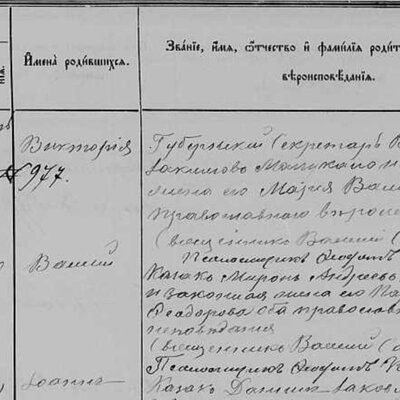 нія.
Имена родившихся.
Званіе, имя, отчество и фамилія родит
вѣроисповѣданія.
Викторія
977.
Губернскій Секретарь
жена его Марія Васи
православнаго вѣроис
(священникъ Василій (
Псаломщикъ
Василій
Казакъ Миронъ Андреевъ
и законная жена его Па
Ѳеодорова оба православн
исповѣданія
(священникъ Василій (
Псаломщикъ
Іоаннъ
Казакъ Даніилъ Іаков